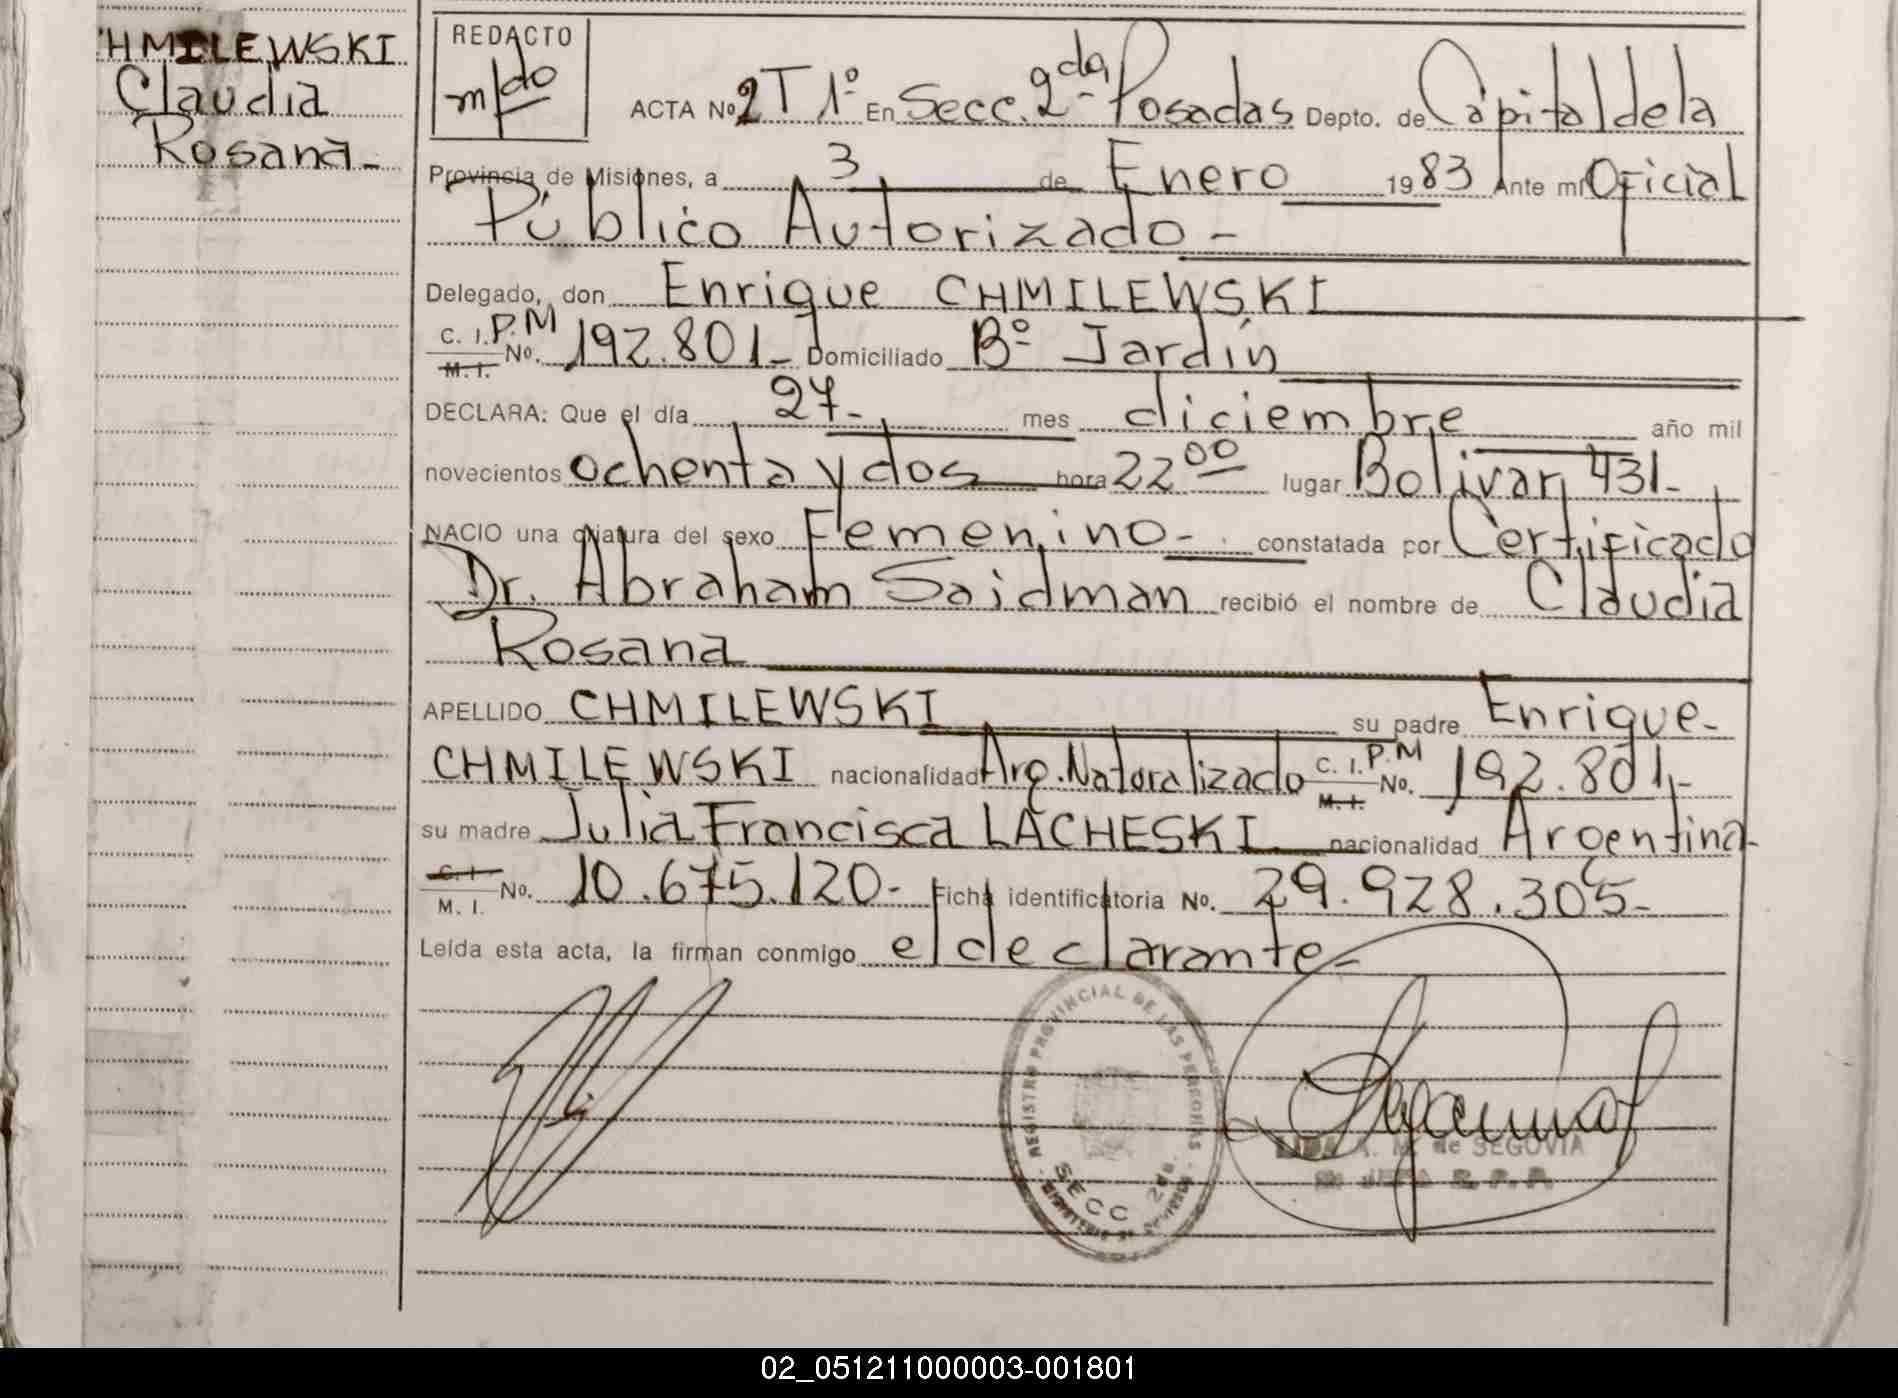 CHMILEWSKI
Claudia
Rosana-
REDACTO
m/do
ACTA Nº 2 T 1º En Secc. 2da Posadas Depto. de Capital de la
Provincia de Misiones, a 3 de Enero 1983 Ante mí Oficial
Público Autorizado-
Delegado, don Enrique CHMILEWSKI
C. I. P.M
M. I. No. 192.801- Domiciliado Bº Jardín
DECLARA: Que el día 27- mes diciembre año mil
novecientos ochenta y dos hora 22 00 lugar Bolivar 431-
NACIO una criatura del sexo Femenino- constatada por Certificado
Dr. Abraham Saidman recibió el nombre de Claudia
Rosana
APELLIDO CHMILEWSKI su padre Enrique-
CHMILEWSKI nacionalidad Arg. Naturalizado C. I. P.M M. I. No. 192.801-
su madre Julia Francisca LACHESKI nacionalidad Argentina-
C. I.
M. I. No. 10.675.120- Ficha identificatoria No. 29.928.305-
Leída esta acta, la firman conmigo el declarante-
REGISTRO PROVINCIAL DE LAS PERSONAS
SECC 2da.
A. M. de SEGOVIA
JEFA R. P. P.
02_051211000003-001801